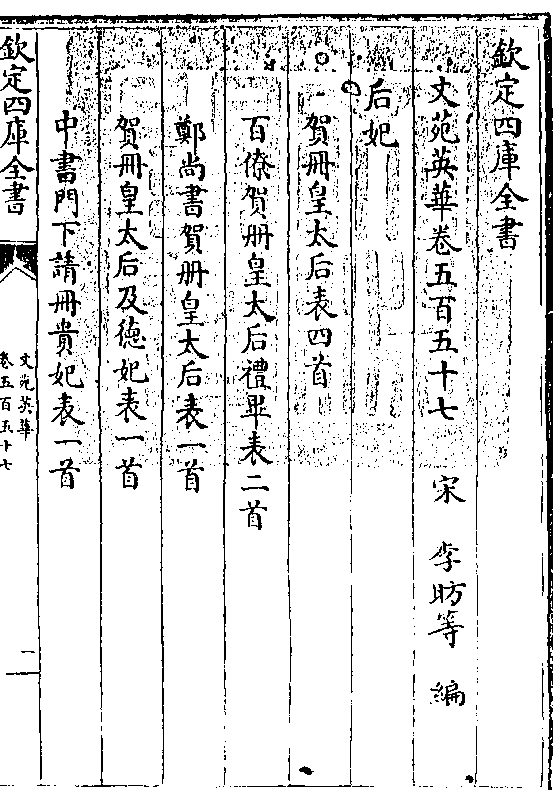 欽定四庫全書
文苑英華卷五百五十七　宋　李昉等　編
后妃
賀冊皇太后表四首
百僚賀冊皇太后禮畢表二首
鄭尚書賀冊皇太后表一首
賀冊皇太后及德妃表一首
中書門下請冊貴妃表一首
欽定四庫全書
文苑英華
卷五百五十七
一